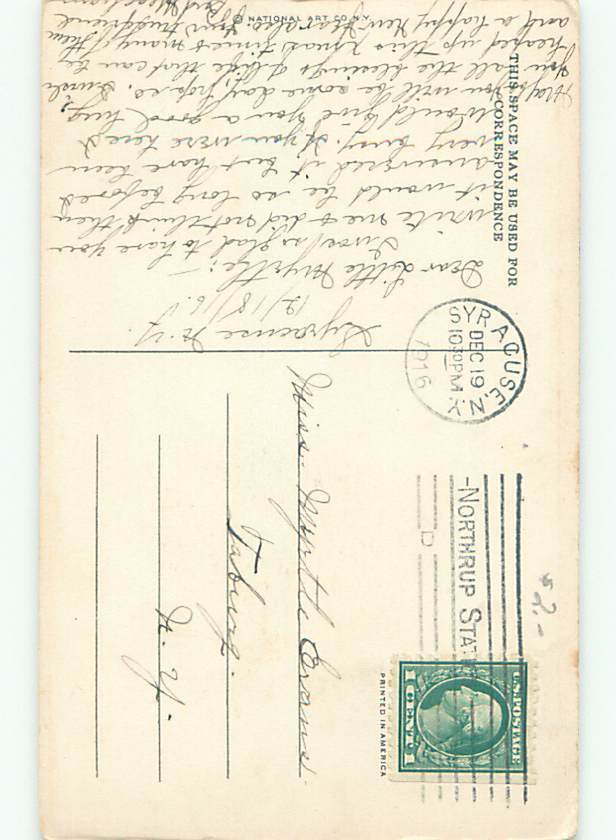 THIS SPACE MAY BE USED FOR
CORRESPONDENCE
© NATIONAL ART CO. N.Y.
Syracuse N.Y.
12/18/16
Dear Little Myrtle:—
I was so glad to have you
write me & did not think then
it would be so long before I
answered it but have been
very busy. If you were here I
would give you a good hug,
you will be some day, I hope. I wish
you all the blessings of life that can be
heaped up this Xmas times many of them
and a happy New Year also.
SYRACUSE, N.Y.
DEC 19
10 30 PM
1916
-NORTHRUP STA.
D
$2.-
U.S. POSTAGE
1 CENT 1
PRINTED IN AMERICA
Miss. Myrtle Evans.
Taberg.
N. Y.